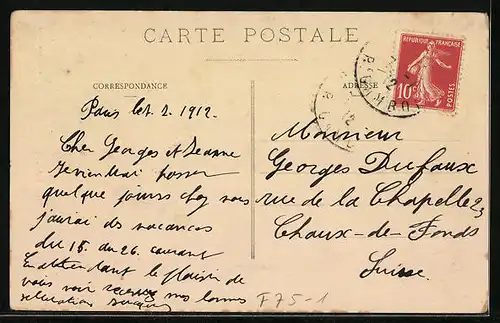 CARTE POSTALE
CORRESPONDANCE
ADRESSE
REPUBLIQUE FRANÇAISE
10c
POSTES
Paris le 2. 1912.
Cher Georges et Jeanne
quelque jours chez vous
j'aurai des vacances
du 15. au 26. courant
En attendant le plaisir de
vous voir recevez nos bonnes
Monsieur
Georges Dufaux
rue de la Chapelle 23
Chaux-de-Fonds
Suisse.
F75-1